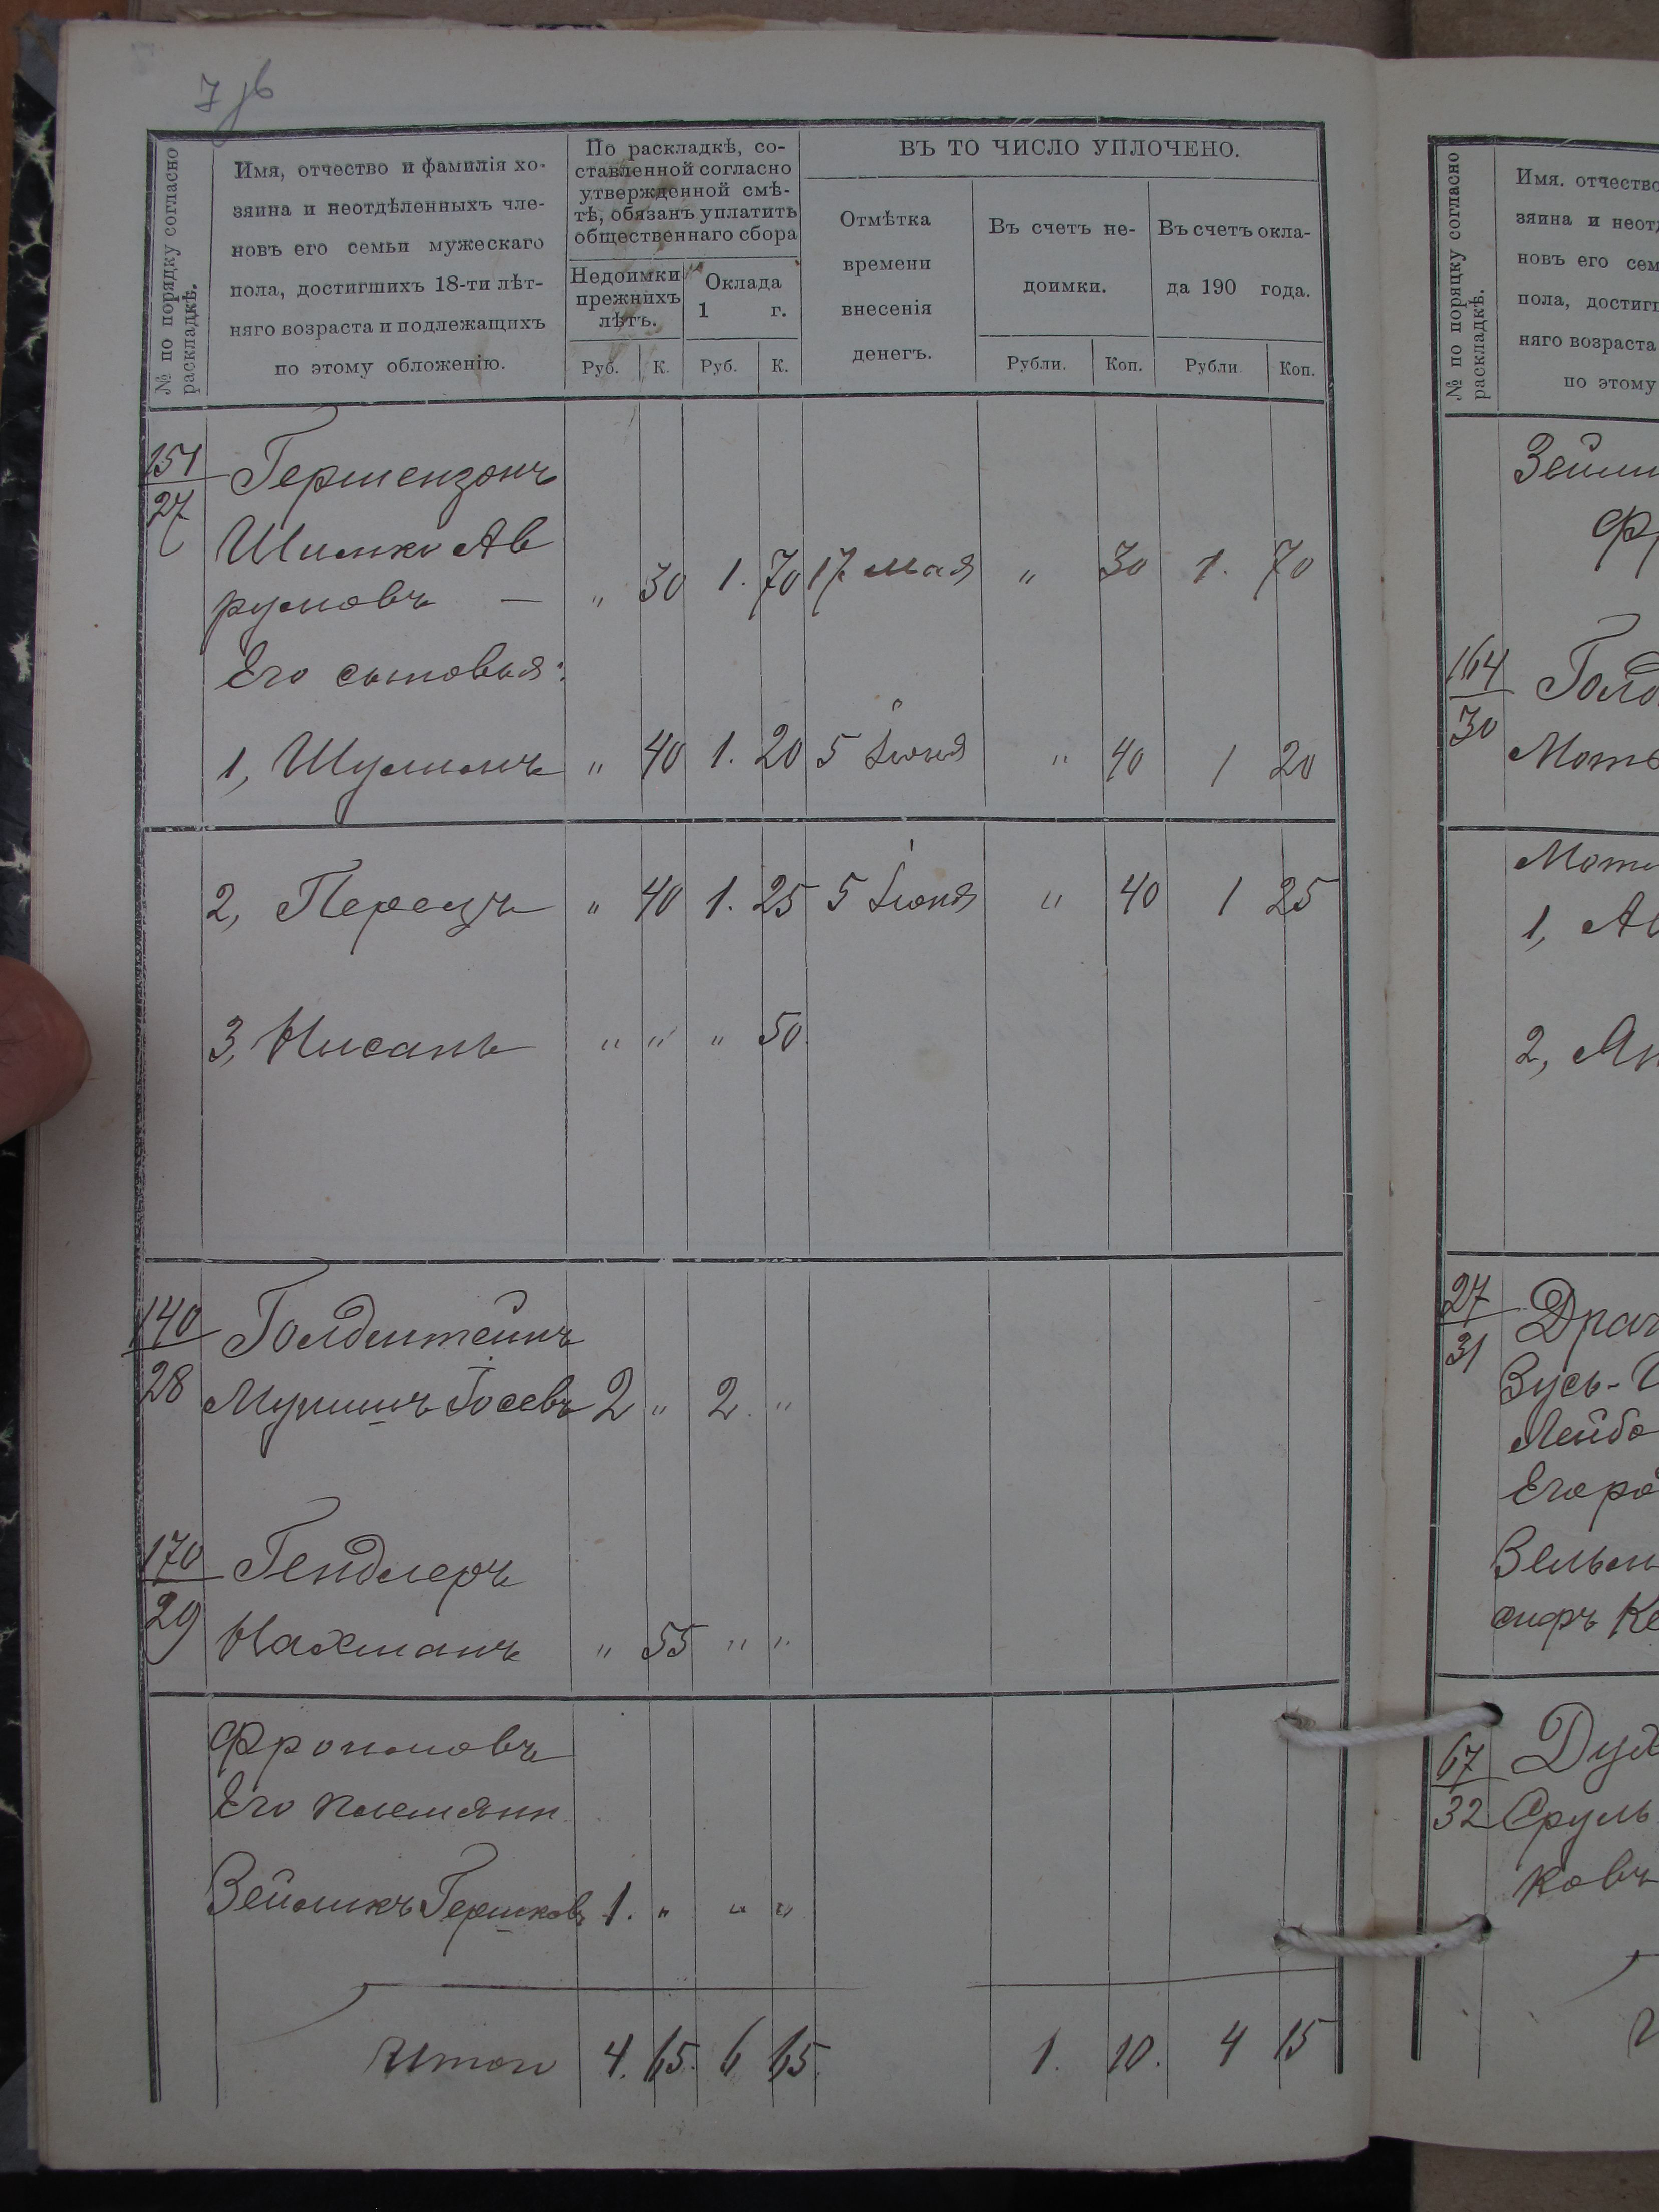 7 об
№ по порядку согласно
раскладкѣ.
Имя, отчество и фамилія хо-
зяина и неотдѣленныхъ чле-
новъ его семьи мужескаго
пола, достигшихъ 18-ти лѣт-
няго возраста и подлежащихъ
по этому обложенію.
По раскладкѣ, со-
ставленной согласно
утвержденной смѣ-
тѣ, обязанъ уплатить
общественнаго сбора
Недоимки
прежнихъ
лѣтъ.
Оклада
1 г.
Руб. К. Руб. К.
ВЪ ТО ЧИСЛО УПЛОЧЕНО.
Отмѣтка
времени
внесенія
денегъ.
Въ счетъ не-
доимки.
Въ счетъ окла-
да 190 года.
Рубли. Коп. Рубли. Коп.
151 Гершензонъ
27
Шимко Ав
румовъ — " 30 1. 70 17 мая " 30 1. 70
Его сыновья:
1, Шулимъ " 40 1. 20 5 Іюня " 40 1 20
2, Перецъ " 40 1. 25 5 Іюня " 40 1 25
3, Нисанъ " " " 50
140 Голдштейнъ
28 Іосевъ 2 " 2. "
170 Гендлеръ
29 Нахманъ " 55 " "
Его племянн.
Зейликъ Гершковъ 1. " " "
Итого 4. 65. 6 65. 1. 10. 4 15
№ по порядку согласно
раскладкѣ.
Имя. отчество
зяина и неотд
новъ его сем
пола, достигш
няго возраста
по этому
164 Голд
30
1, Ав
27
31
Зусь-
Лейбо
67
32 Сруль
ковъ